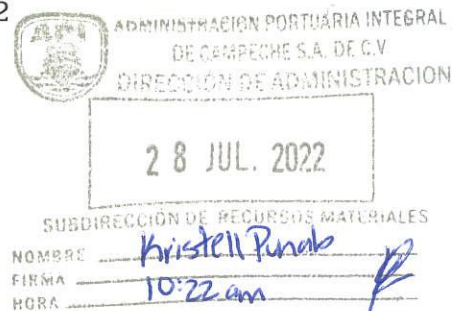 2
ADMINISTRACION PORTUARIA INTEGRAL
DE CAMPECHE S.A. DE C.V
DIRECCIÓN DE ADMINISTRACION
2 8 JUL. 2022
SUBDIRECCIÓN DE RECURSOS MATERIALES
NOMBRE Kristell Punab
FIRMA
HORA 10:22 am